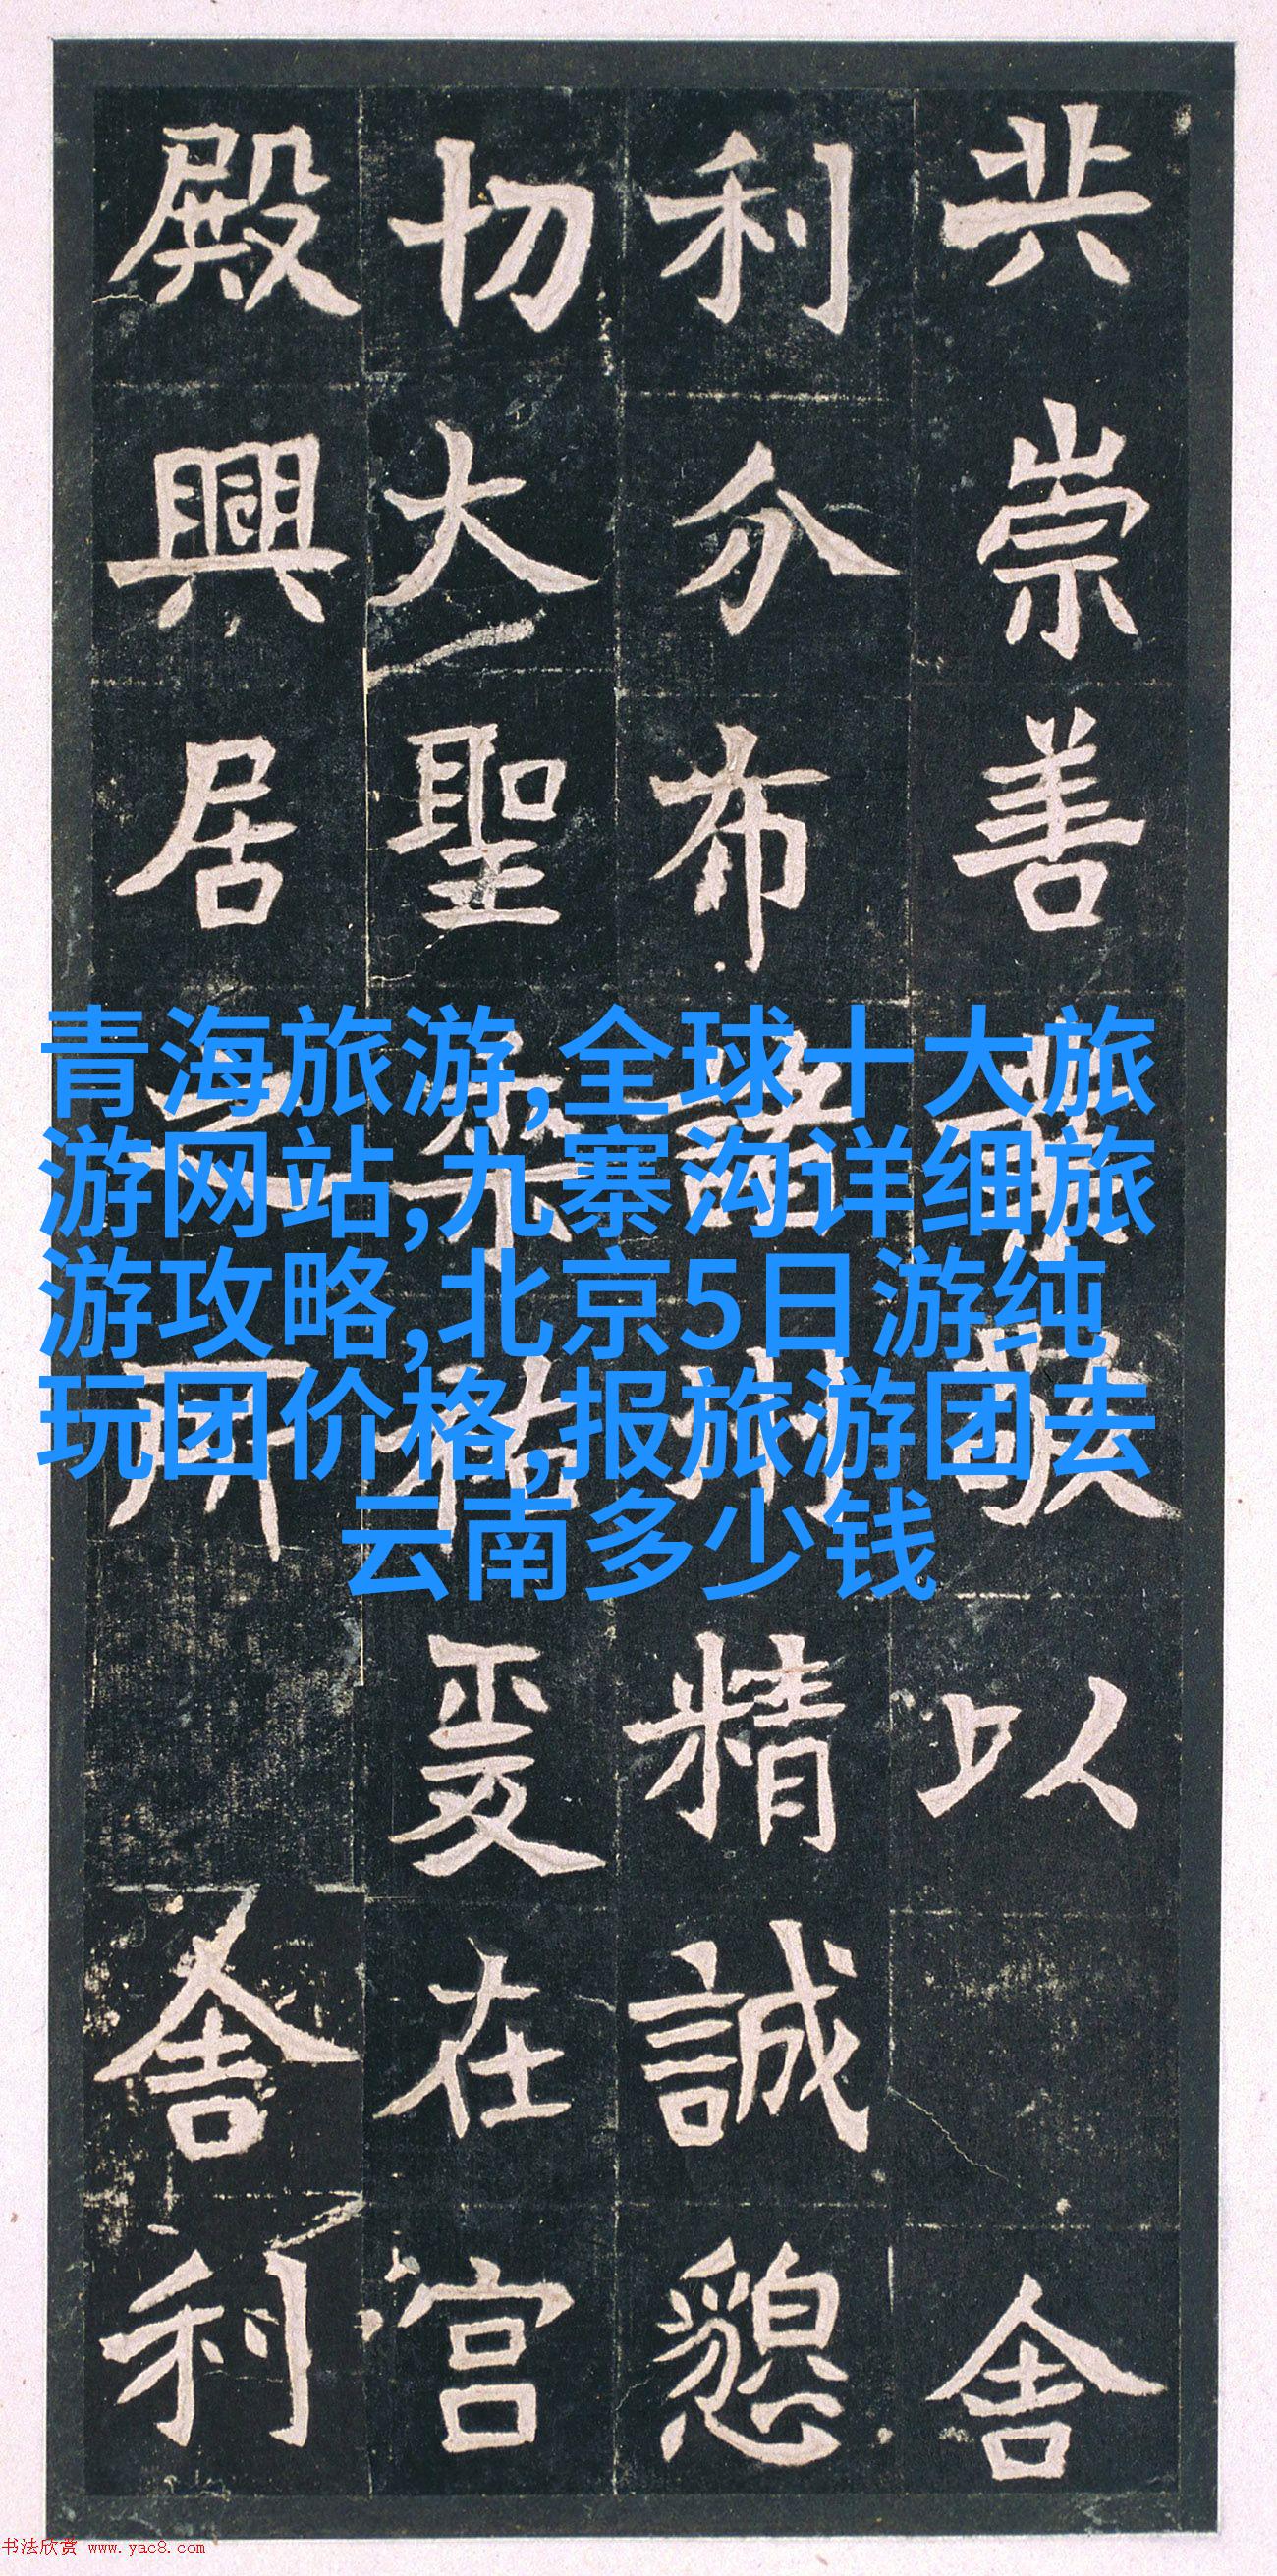 共崇善敬以舍
利分布諸州精誠懇
切大聖祐爰在宮
殿興居之所舍利
青海旅游,全球十大旅
游网站,九寨沟详细旅
游攻略,北京5日游纯
玩团价格,报旅游团去
云南多少钱
书法欣赏 www.yac8.com